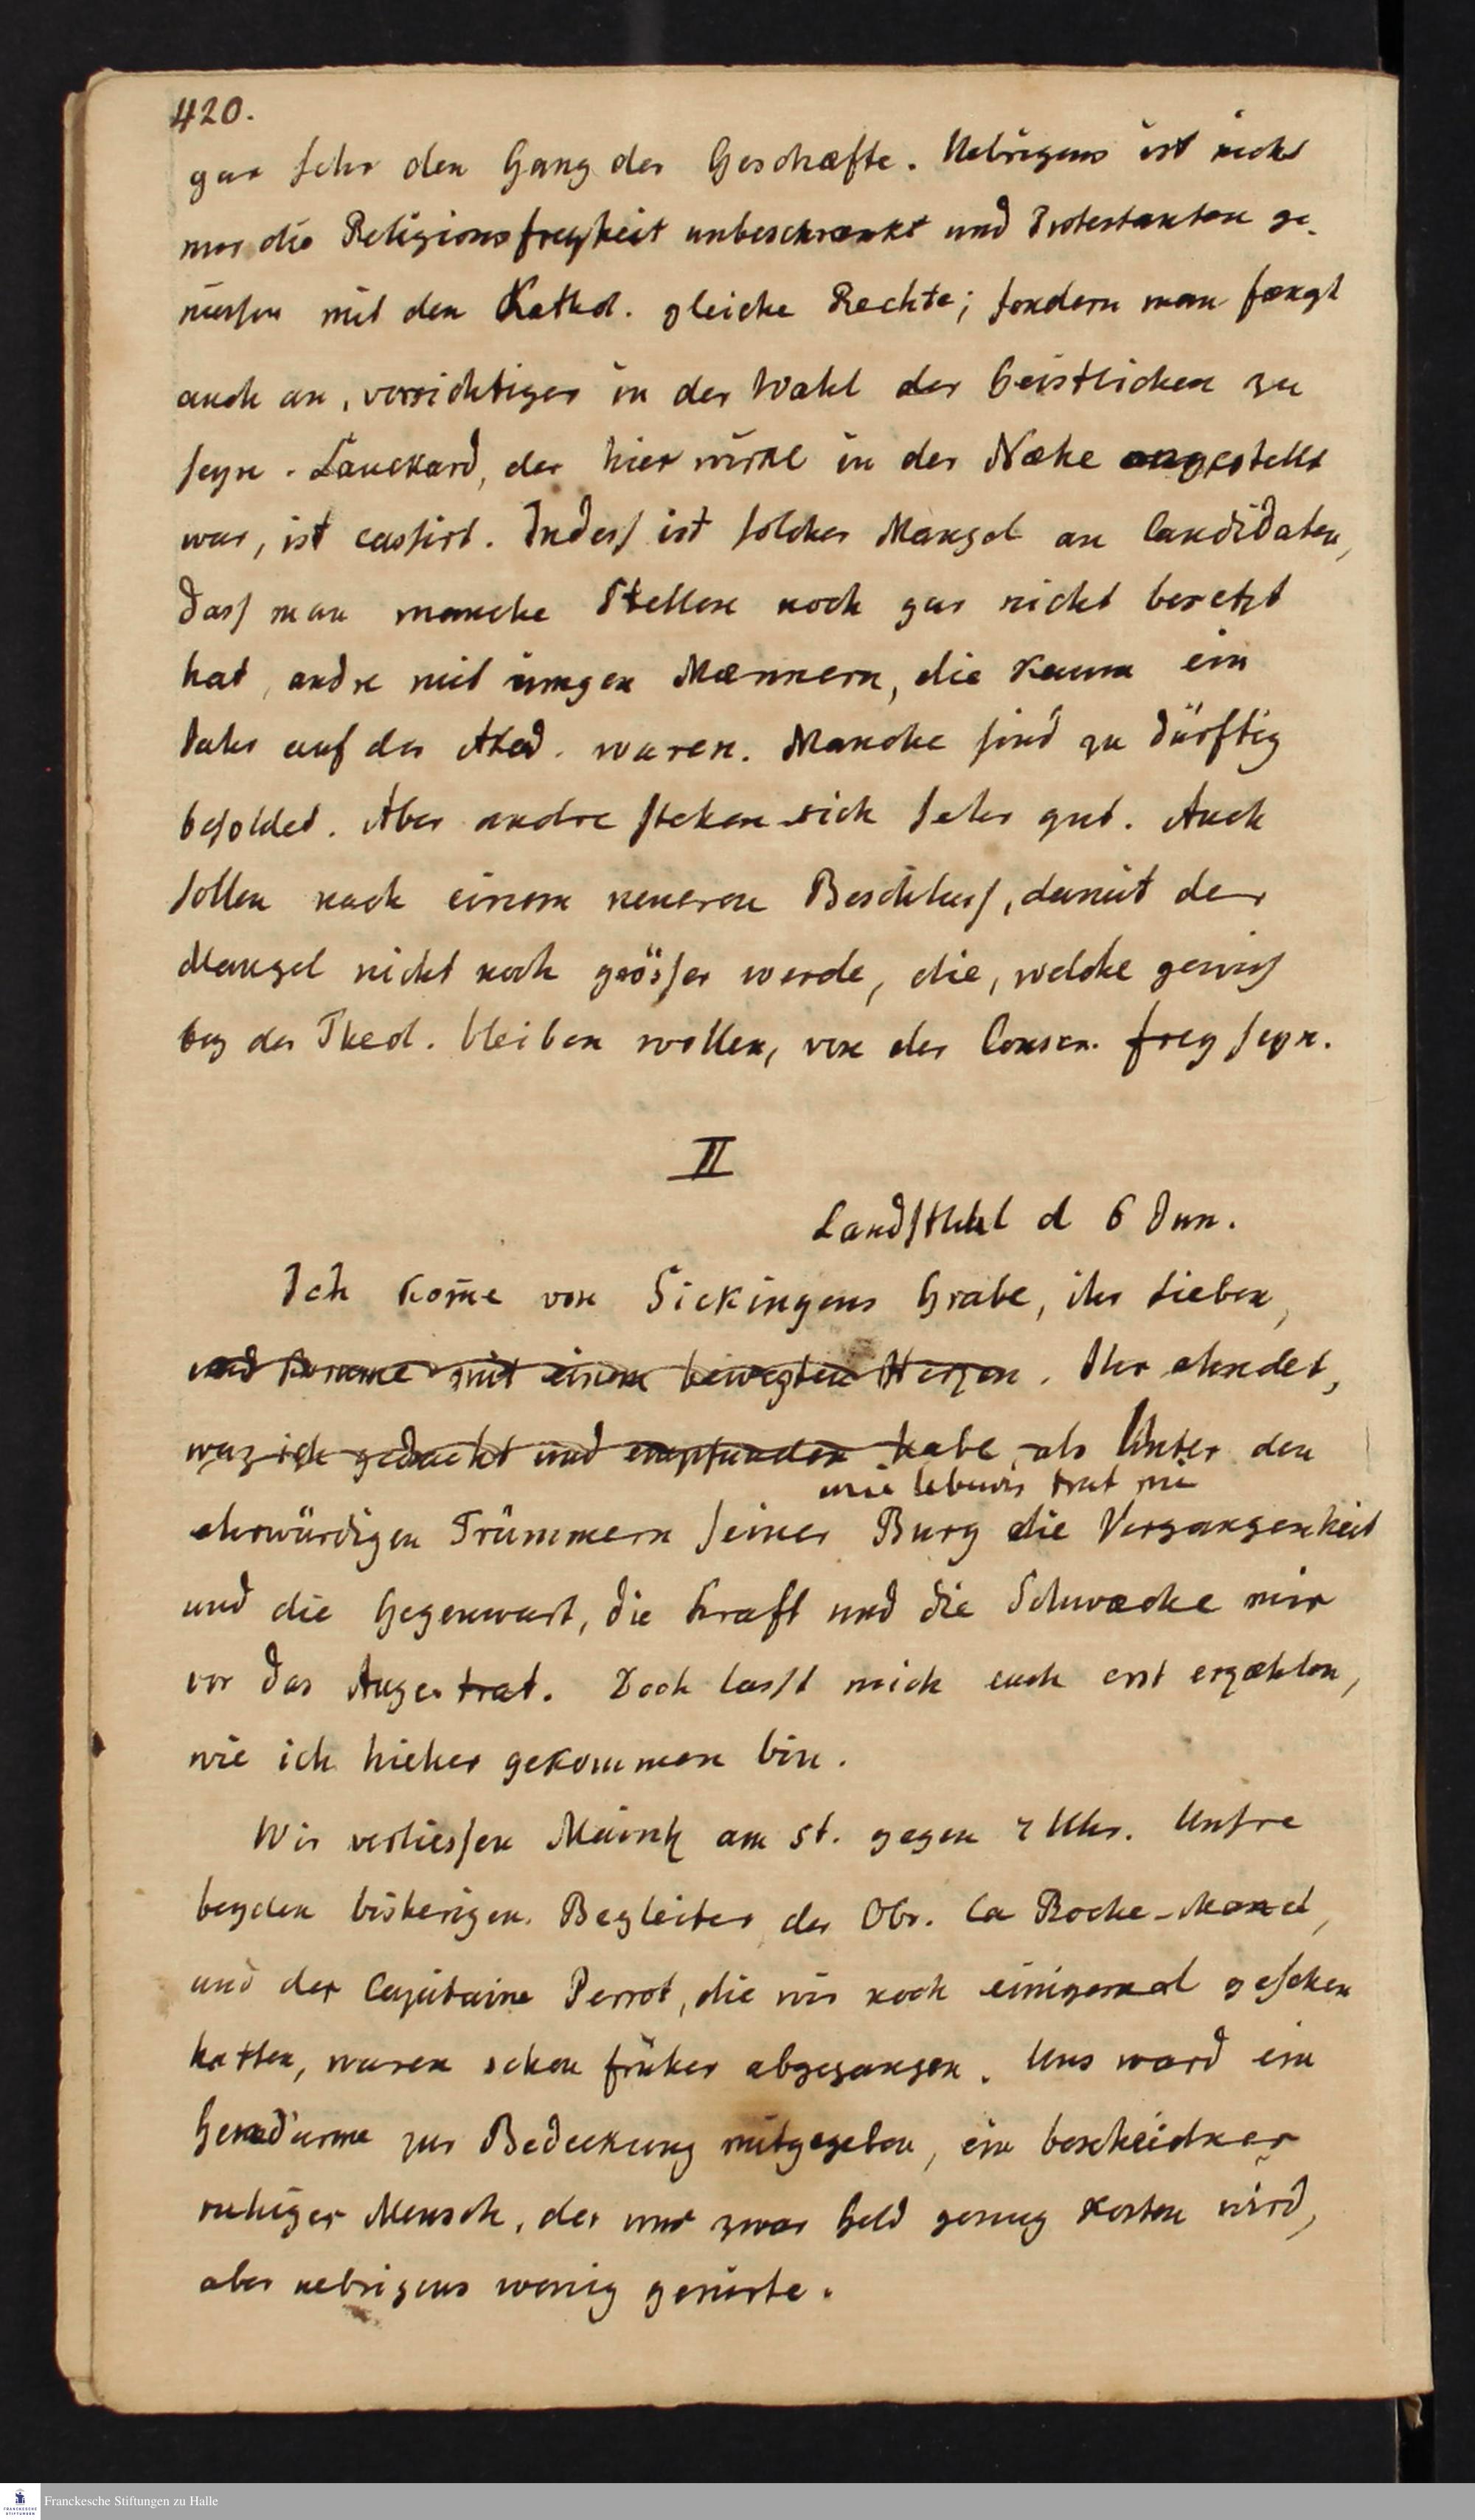 420.
gar sehr den Gang der Geschæfte. Uebrigens ist nicht
nur die Religionsfreyheit unbeschrænkt und Protestanten ge-
niessen mit den Kathol. gleiche Rechte; sondern man fængt
auch an, vorsichtiger in der Wahl der Geistlichen zu
seyn. Lauckard, der hier nicht in der Næhe angestellt
war, ist cassirt. Indess ist solcher Mangel an Candidaten,
dass man manche Stellen noch gar nicht besetzt
hat, andre mit jungen Mænnern, die kaum ein
Jahr auf der Akad. waren. Manche sind zu dürftig
besoldet. Aber andre stehen sich sehr gut. Auch
sollen nach einem neueren Beschluss, damit der
Mangel nicht noch grösser werde, die, welche gewiss
bey der Theol. bleiben wollen, von der Conscr. frey seyn.
II
Landstuhl d 6 Jun.
Ich kom̄e von Sickingens Grabe, ihr Lieben,
und komme mit einem bewegten Herzen. Ihr ahndet,
was ich gedacht und empfunden habe, als Unter den
wie lebend trat mir
ehrwürdigen Trümmern seiner Burg die Vergangenheit
und die Gegenwart, die Kraft und die Schwæche mir
vor das Auge trat. Doch lasst mich euch erst erzæhlen,
wie ich hieher gekommen bin.
Wir verliessen Mainz am 5t. gegen Uhr. Unsre
beyden bisherigen Begleiter, der Obr. La Roche-
und der Capitaine Perrot, die wir noch einigemal gesehen
hatten, waren schon früher abgegangen. Uns ward ein
Gensd'arme zur Bedeckung mitgegeben, ein bescheidner
ruhiger Mensch, der uns zwar Geld genug kosten wird,
aber uebrigens wenig genirte.
Franckesche Stiftungen zu Halle